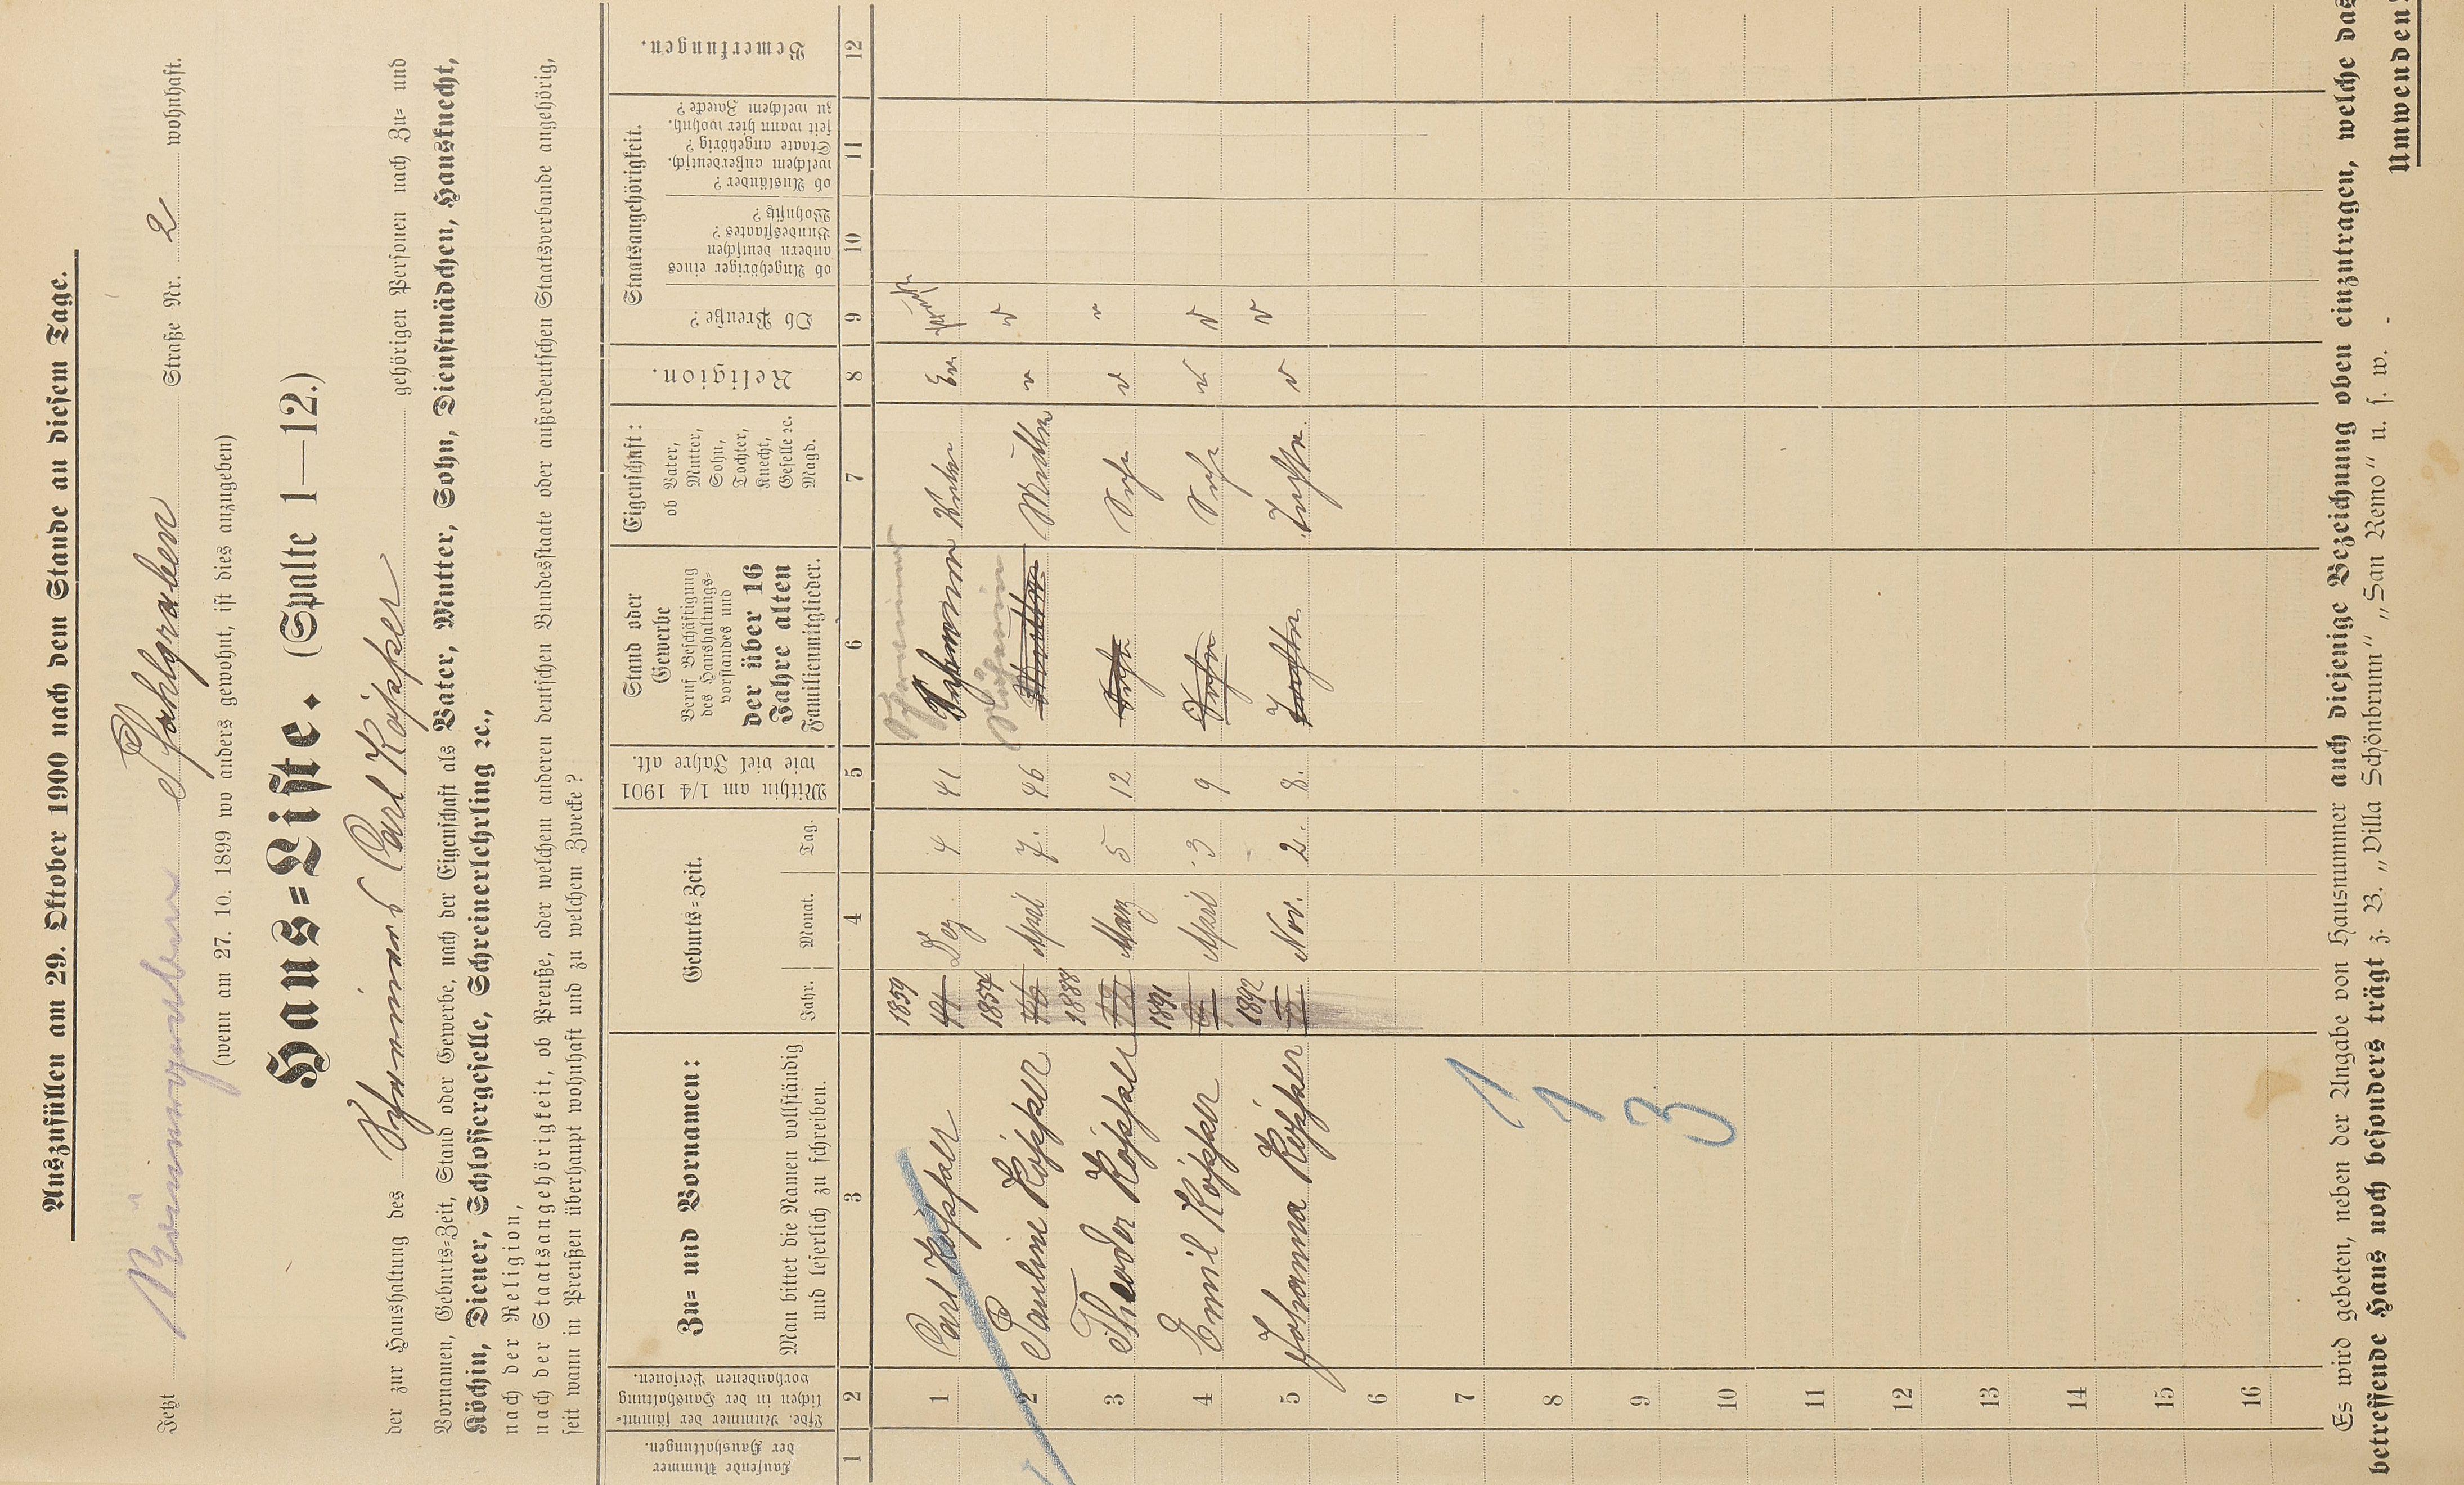 Auszufüllen am 29. Oktober 1900 nach dem Stande an diesem Tage.
Jetzt Pfahlgraben Straße Nr. 2 wohnhaft.
(wenn am 27. 10. 1899 wo anders gewohnt, ist dies anzugeben)
Haus=Liste. (Spalte 1—12.)
der zur Haushaltung des Schreiner Carl Köpper gehörigen Personen nach Zu= und
Vornamen, Geburts=Zeit, Stand oder Gewerbe, nach der Eigenschaft als Vater, Mutter, Sohn, Dienstmädchen, Hausknecht,
Köchin, Diener, Schlossergeselle, Schreinerlehrling ꝛc.,
nach der Religion,
nach der Staatsangehörigkeit, ob Preuße, oder welchem anderen deutschen Bundesstaate oder außerdeutschen Staatsverbande angehörig,
seit wann in Preußen überhaupt wohnhaft und zu welchem Zwecke?
Laufende Nummer der Haushaltungen.
Lfde. Nummer der sämmt=lichen in der Haushaltung vorhandenen Personen.
Zu= und Vornamen:
Man bittet die Namen vollständig und leserlich zu schreiben.
Geburts=Zeit.
Jahr. Monat. Tag.
Mithin am 1/4 1901 wie viel Jahre alt.
Stand oder Gewerbe
Beruf Beschäftigung des Haushaltungs=vorstandes und der über 16 Jahre alten Familienmitglieder.
Eigenschaft:
ob Vater, Mutter, Sohn, Tochter, Knecht, Geselle ꝛc. Magd.
Religion.
Staatsangehörigkeit.
Ob Preuße?
ob Angehöriger eines andern deutschen Bundesstaates? Wohnsitz?
ob Ausländer? welchem außerdeutsch. Staate angehörig? seit wann hier wohnh. zu welchem Zwecke?
Bemerkungen.
1 2 3 4 5 6 7 8 9 10 11 12
1 Carl Köpper 1859 41 Dez 4 41 Vater Ev Preuße
2 Pauline Köpper 1854 46 April 7. 46 Mutter Mutter " "
3 Theodor Köpper 1888 12 März 5 12 Sohn Sohn " "
4 Emil Köpper 1891 9 April 3 9 Sohn Sohn " "
5 Johanna Köpper 1892 8. Nov. 2. 8. Tochter Tochter " "
6
7 1
8 1
9
10 3
11
12
13
14
15
16
Es wird gebeten, neben der Angabe von Hausnummer auch diejenige Bezeichnung oben einzutragen, welche das
betreffende Haus noch besonders trägt z. B. „Villa Schönbrunn" „San Remo" u. s. w.
Umwenden!